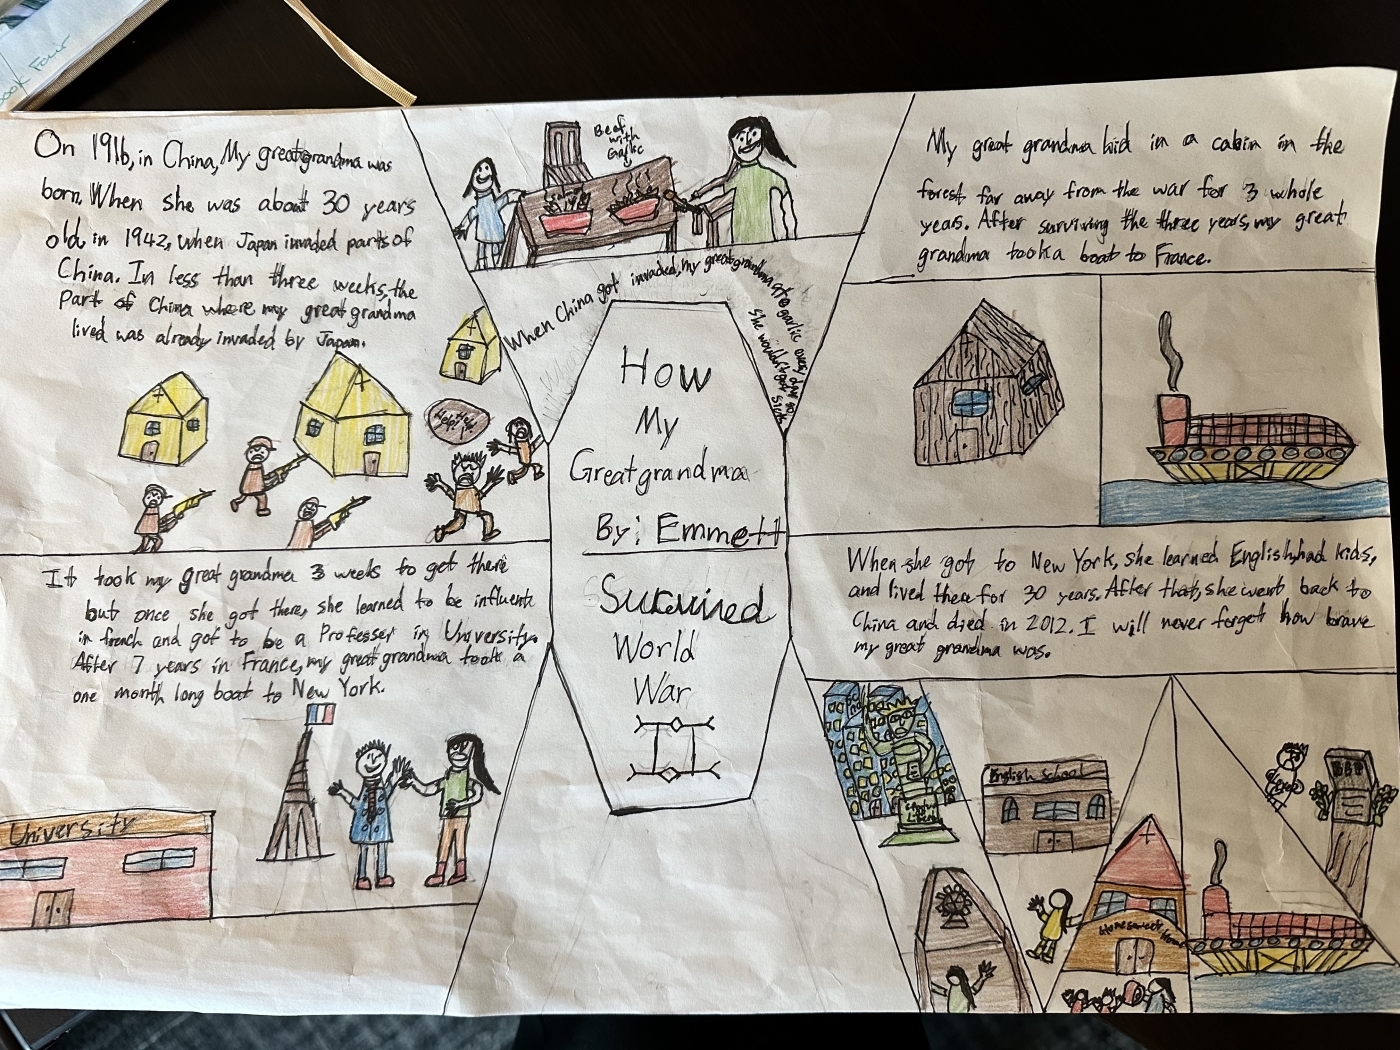 ook Four
On 1916, in China, My greatgrandma was
born. When she was about 30 years
old in 1942, when Japan invaded parts of
China. In less than three weeks, the
part of China where my great grandma
lived was already invaded by Japan.
Help!
Beaf
with
Garlic
When China got invaded, my greatgrandma ate garlic every day so
she wouldn't get sick
My great grandma hid in a cabin in the
forest far away from the war for 3 whole
years. After surviving the three years, my great
grandma took a boat to France.
How
My
Greatgrandma
By: Emmett
Survived
World
War
II
It took my great grandma 3 weeks to get there
but once she got there, she learned to be influent
in french and got to be a Professer in University.
After 7 years in France, my great grandma took a
one month long boat to New York.
University
When she got to New York, she learned English, had kids,
and lived there for 30 years. After that, she went back to
China and died in 2012. I will never forget how brave
my great grandma was.
English School
Home sweet Home